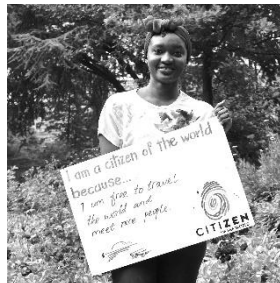 I am a citizen of the world
because...
I am free to travel
the world and
meet new people.
CITIZEN